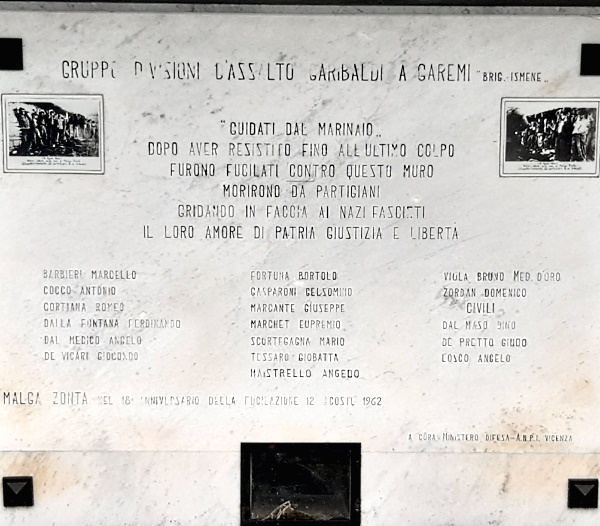 GRUPPO DIVISIONI D'ASSALTO GARIBALDI A GAREMI "BRIG. ISMENE"
"GUIDATI DAL MARINAIO"
DOPO AVER RESISTITO FINO ALL'ULTIMO COLPO
FURONO FUCILATI CONTRO QUESTO MURO
MORIRONO DA PARTIGIANI
GRIDANDO IN FACCIA AI NAZI FASCISTI
IL LORO AMORE DI PATRIA GIUSTIZIA E LIBERTÀ
BARBIERI MARCELLO
COCCO ANTONIO
CORTIANA ROMEO
DALLA FONTANA FERDINANDO
DAL MEDICO ANGELO
DE VICARI GIOCONDO
FORTUNA BORTOLO
GASPARONI GELSOMINO
MARCANTE GIUSEPPE
MARCHET EUPREMIO
SCORTEGAGNA MARIO
TESSARO GIOBATTA
MAISTRELLO ANGEDO
VIOLA BRUNO MED. D'ORO
ZORDAN DOMENICO
CIVILI
DAL MASO DINO
DE PRETTO GIUDO
LOSCO ANGELO
MALGA ZONTA NEL 18° ANNIVERSARIO DELLA FUCILAZIONE 12 AGOSTO 1962
A CURA MINISTERO DIFESA-A.N.P.I. VICENZA